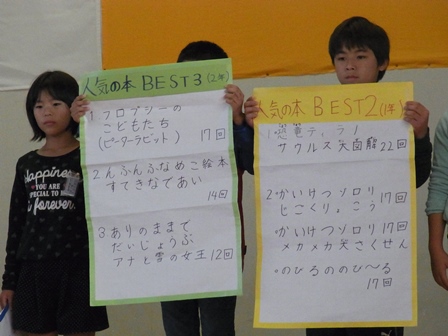 人気の本 BEST3(2年)
1 フロプシーの
こどもたち
(ピーターラビット) 17回
2 んふんふなめこ絵本
すてきなであい
14回
3 ありのままで
だいじょうぶ
アナと雪の女王 12回
人気の本 BEST2(1年)
1 恐竜ティラノ
サウルス 大図館 22回
2 ・かいけつゾロリ
じごくりょこう 17回
・かいけつゾロリ 17回
メカメカ大さくせん
・のびるののび〜る
17回
HAPPINESS
YOU ARE
SO SPECIAL
TO ME
forever